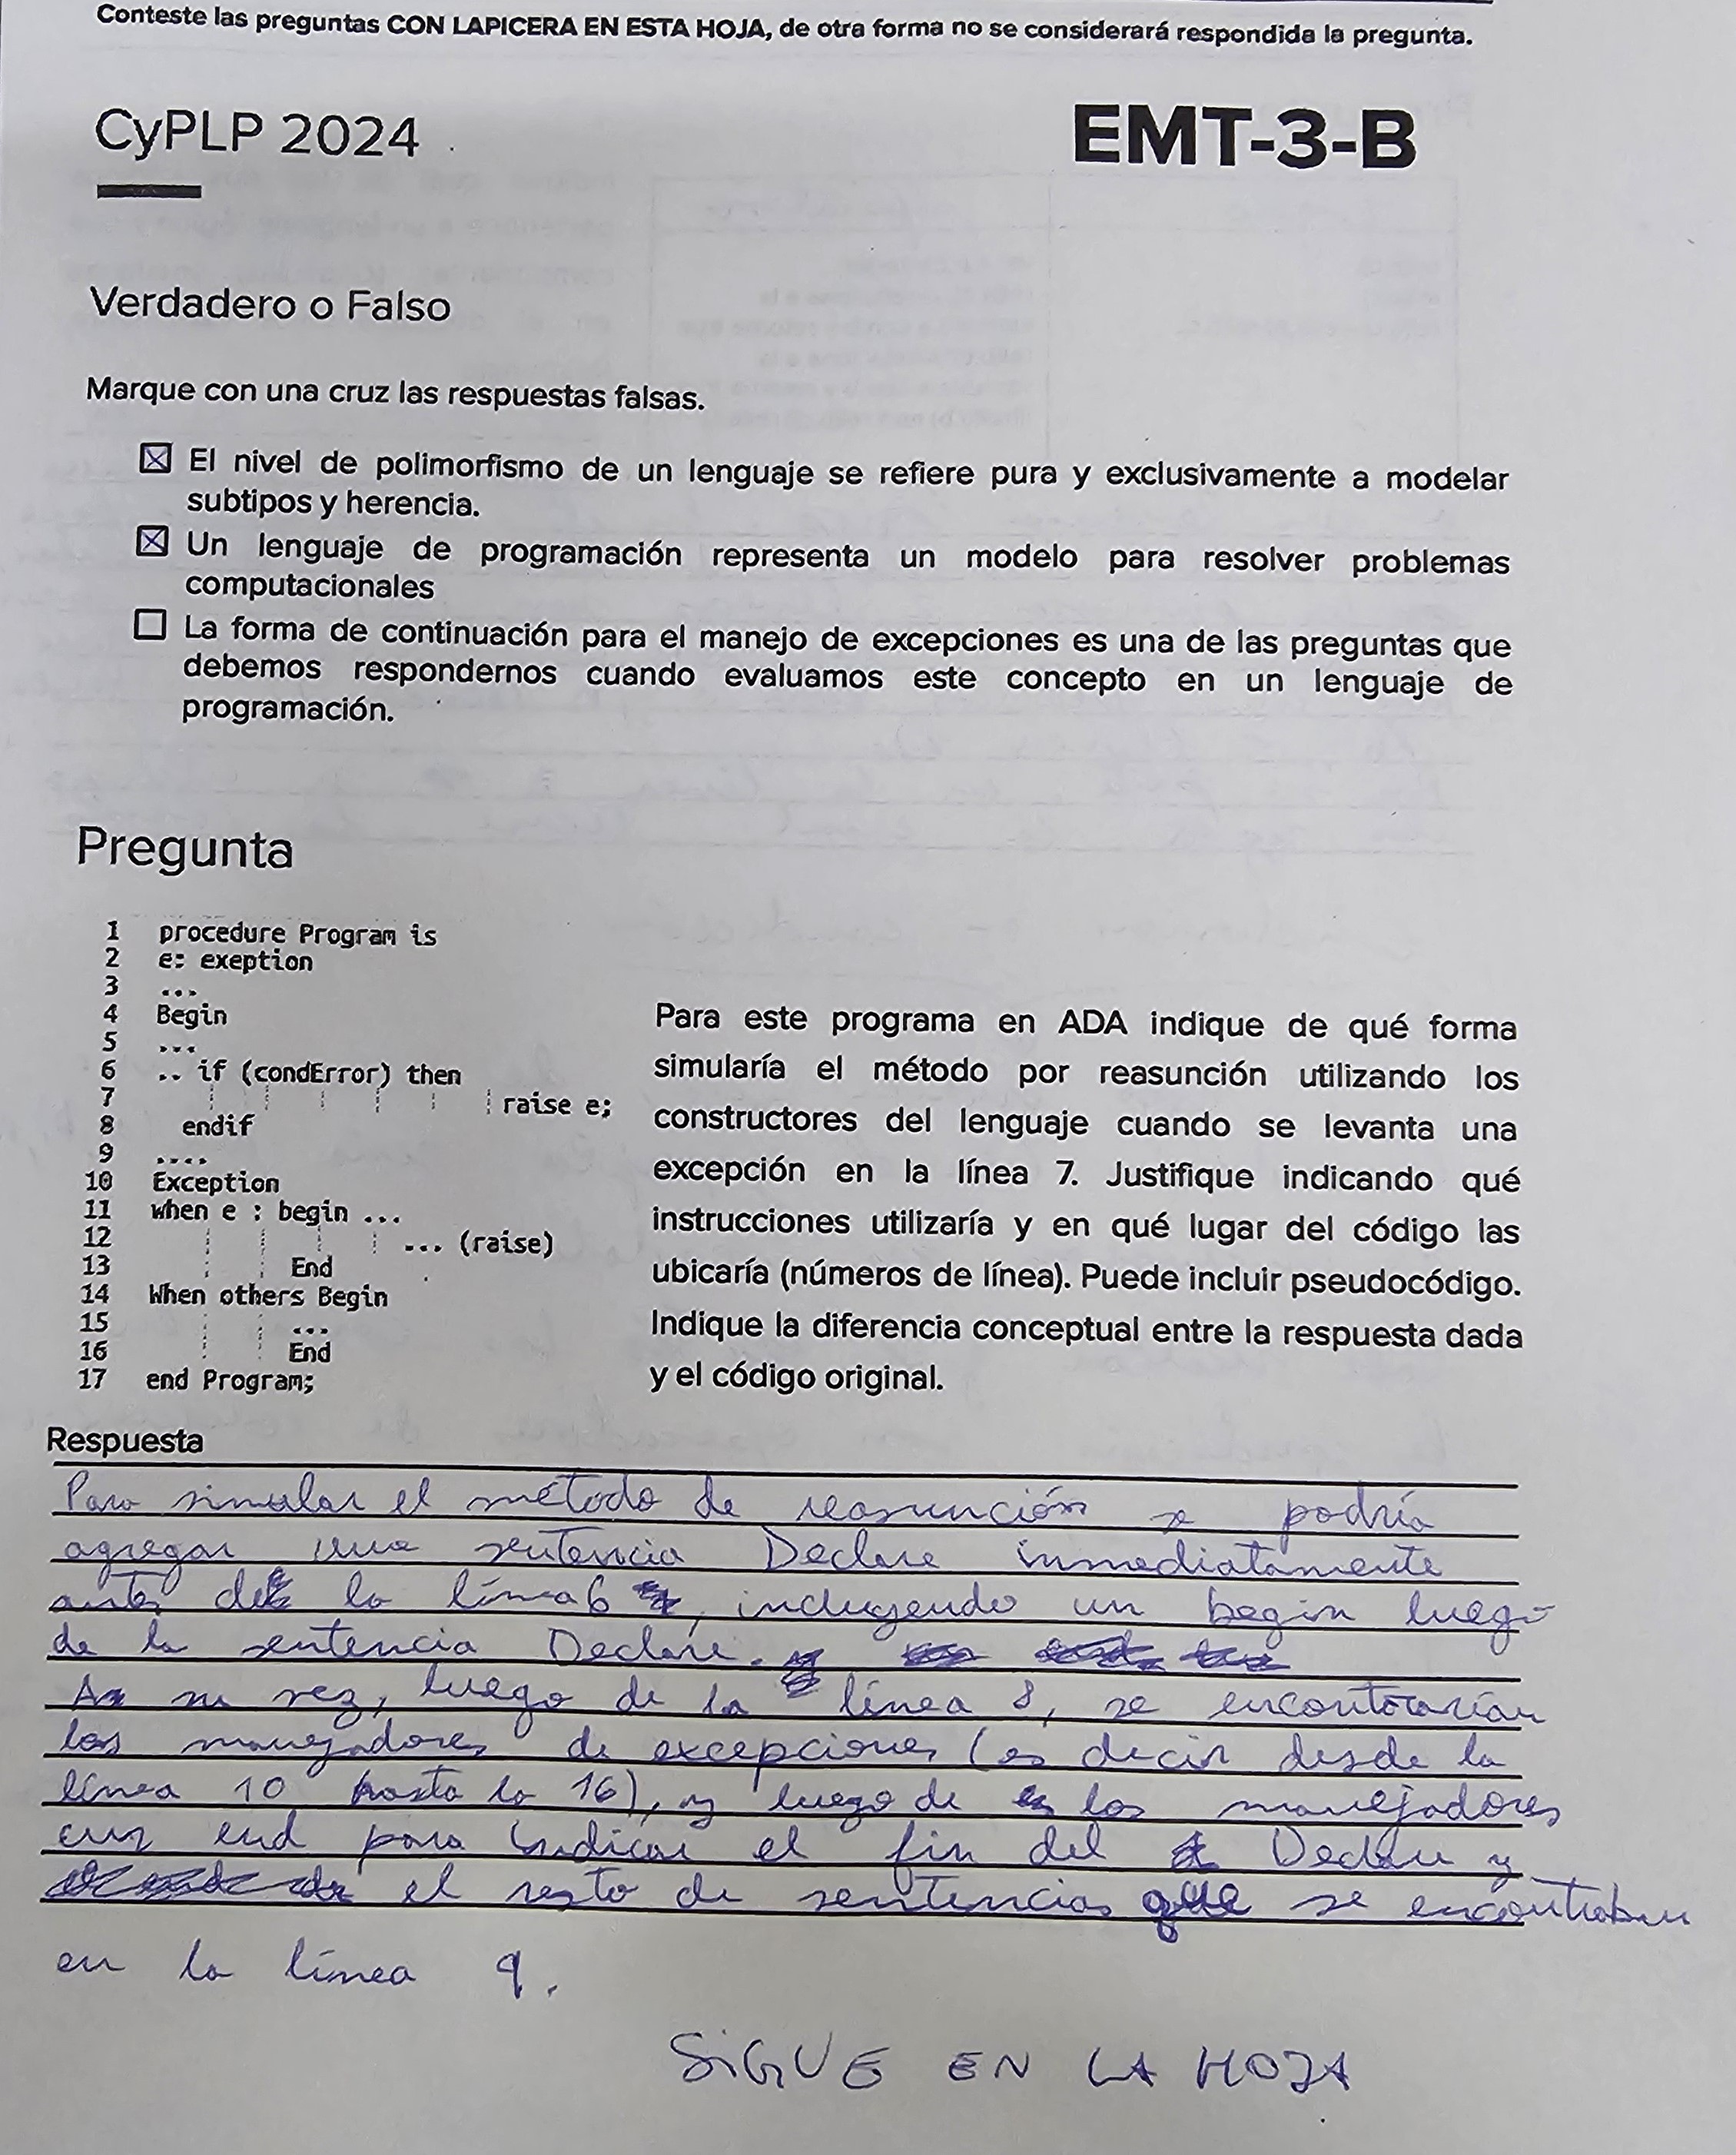 Conteste las preguntas CON LAPICERA EN ESTA HOJA, de otra forma no se considerará respondida la pregunta.
CyPLP 2024
EMT-3-B
Verdadero o Falso
Marque con una cruz las respuestas falsas.
El nivel de polimorfismo de un lenguaje se refiere pura y exclusivamente a modelar
subtipos y herencia.
Un lenguaje de programación representa un modelo para resolver problemas
computacionales
La forma de continuación para el manejo de excepciones es una de las preguntas que
debemos respondernos cuando evaluamos este concepto en un lenguaje de
programación.
Pregunta
1 procedure Program is
2 e: exeption
3 ...
4 Begin
5 ...
6 .. if (condError) then
7 raise e;
8 endif
9 ....
10 Exception
11 when e : begin ...
12 ... (raise)
13 End
14 When others Begin
15 ...
16 End
17 end Program;
Para este programa en ADA indique de qué forma
simularía el método por reasunción utilizando los
constructores del lenguaje cuando se levanta una
excepción en la línea 7. Justifique indicando qué
instrucciones utilizaría y en qué lugar del código las
ubicaría (números de línea). Puede incluir pseudocódigo.
Indique la diferencia conceptual entre la respuesta dada
y el código original.
Respuesta
Para simular el método de reasunción se podría
agregar una sentencia Declare inmediatamente
antes de la línea 6, incluyendo un begin luego
de la sentencia Declare.
A su vez, luego de la línea 8, se encontrarían
los manejadores de excepciones (es decir desde la
línea 10 hasta la 16), y luego de los manejadores
un end para indicar el fin del Declare y
el resto de sentencias que se encontraban
en la línea 9.
SIGUE EN LA HOJA